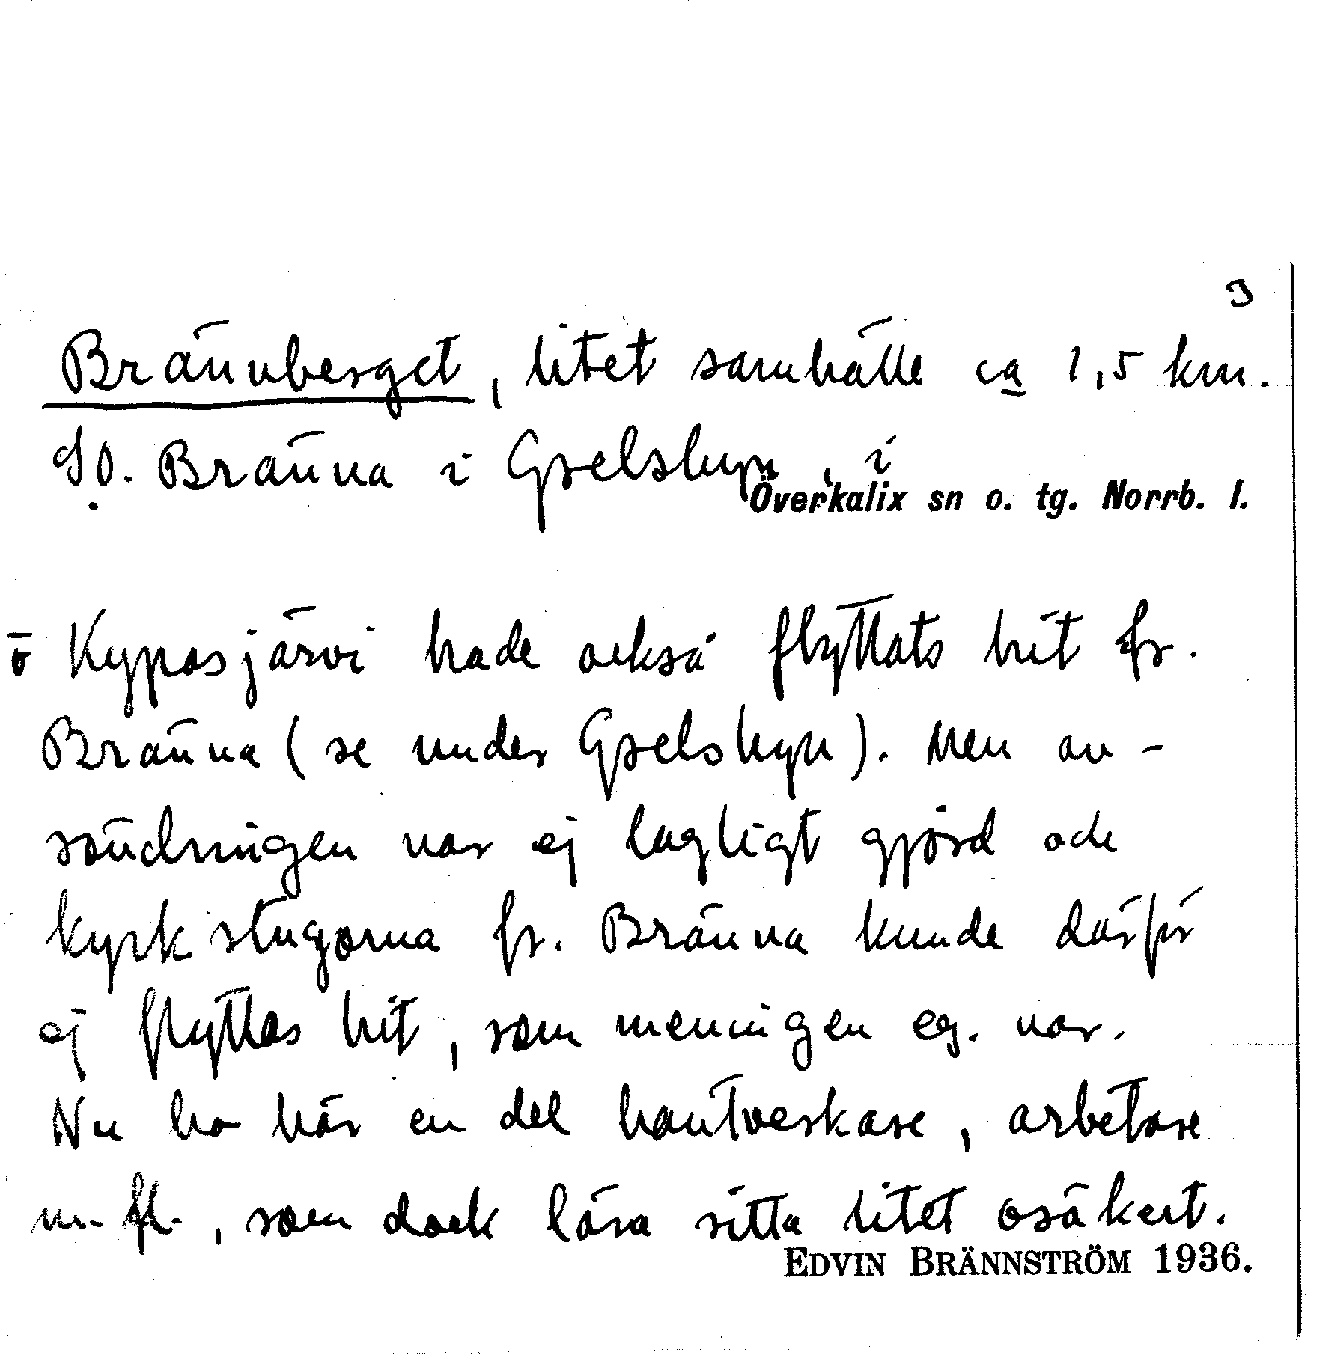 3
Brännberget, litet samhälle ca 1,5 km.
SO. Bränna i Gyelsbyn, i
Överkalix sn o. tg. Norrb. l.
ö Kypasjärvi hade också flyttats hit fr.
Bränna (se under Gyelsbyn). Men an-
söndringen var ej lagligt gjord och
kyrkstugorna fr. Bränna kunde därför
ej flyttas hit, som meningen eg. var.
Nu bo här en del hantverkare, arbetare
m. fl., som dock lära sitta litet osäkert.
EDVIN BRÄNNSTRÖM 1936.